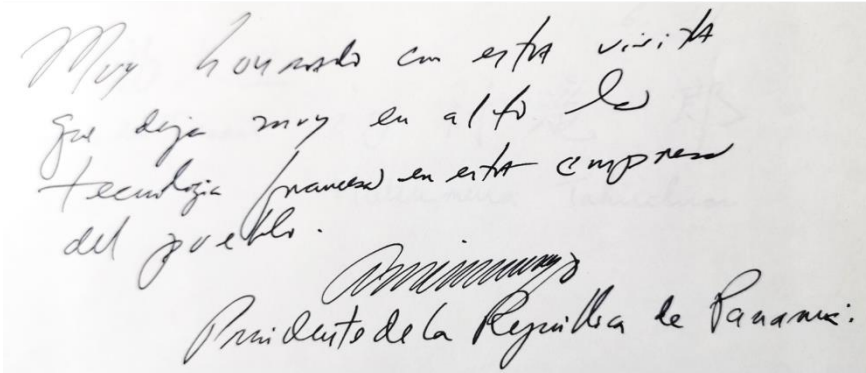 Muy honrado con esta visita
que deja muy en alto la
tecnologia francesa en esta empresa
del pueblo.
Presidente de la Republica de Panama.